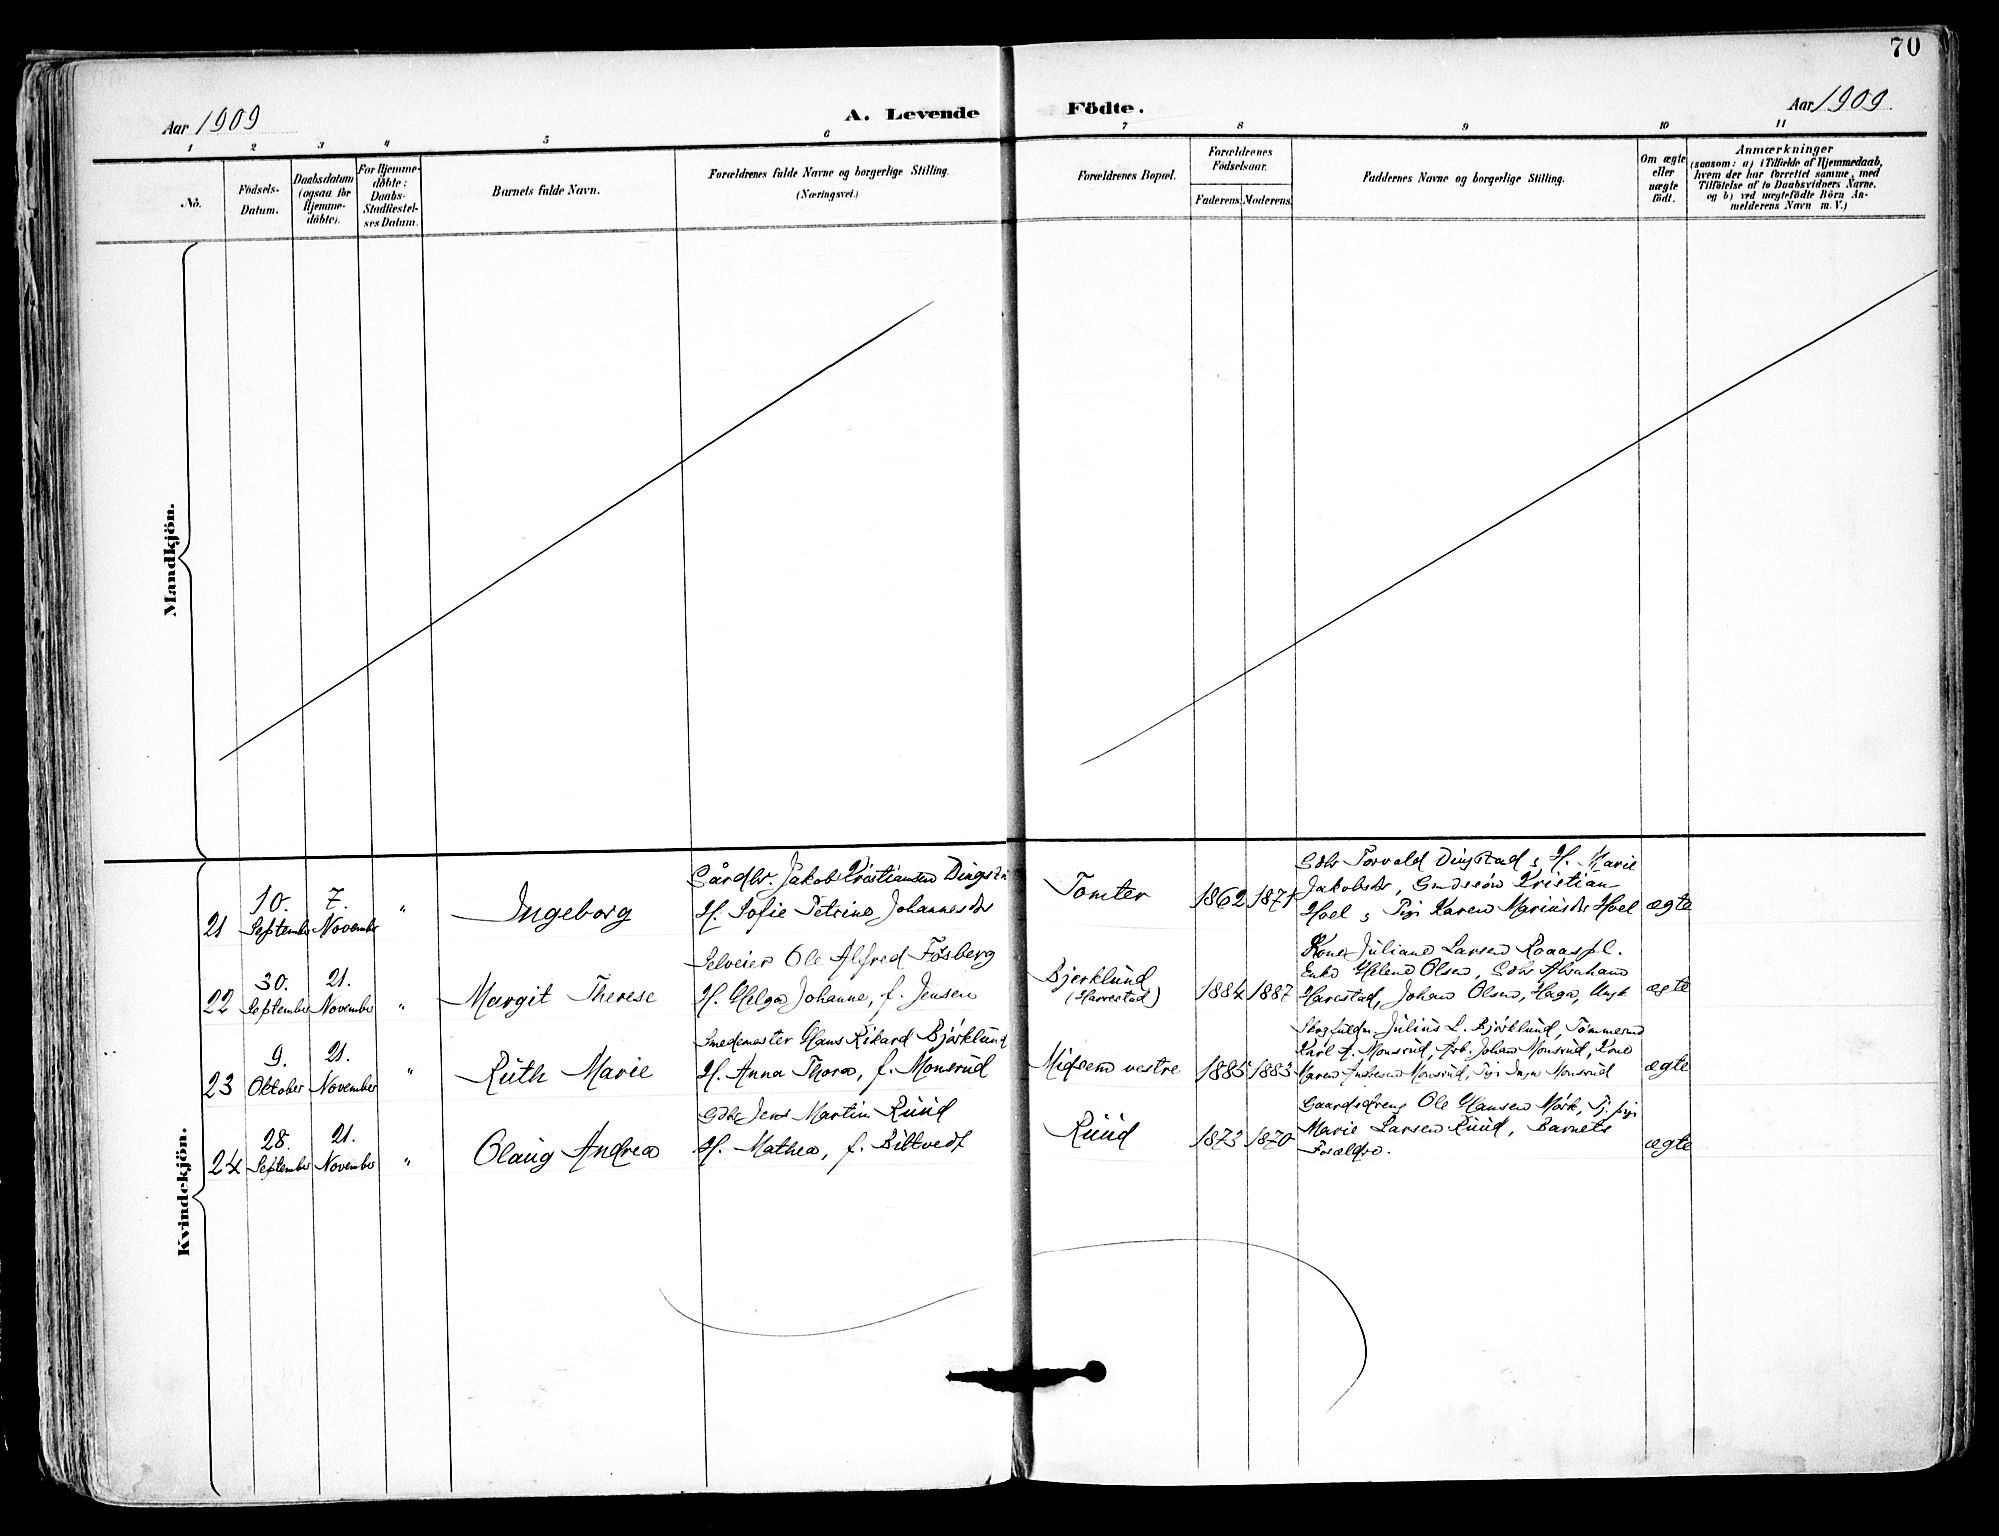 70
Aar 1909
A. Levende Födte.
Aar 1909
1 2 3 4 5 6 7 8 9 10 11
No.
Födsels-Datum.
Daabsdatum (ogsaa for Hjemme-döbte).
For Hjemme-döbte: Daabs-Stadfæstel-ses Datum.
Barnets fulde Navn.
Forældrenes fulde Navne og borgerlige Stilling.
(Næringsvei.)
Forældrenes Bopæl.
Forældrenes Födselsaar.
Faderens. Moderens.
Faddernes Navne og borgerlige Stilling.
Om ægte eller uægte födt.
Anmærkninger
(saasom: a) i Tilfælde af Hjemmedaab,
hvem der har forrettet samme, med
Tilföielse af to Daabsvidners Navne.
og b) ved uægtefödte Börn An-
melderens Navn m. V.)
Mandkjön.
Kvindekjön.
21 10. September 7. November " Ingeborg
Gårdbr. Jakob Kristiansen Dingst
H. Sofie Petrine Johannesdtr
Tomter 1862 1871
Gdbr Torvald Dingstad & H. Marie
Jakobsdtr, Gaardssøn Kristian
Hoel & Pige Karen Mariusdtr Hoel
ægte
22 30. September 21. November " Margit Therese
Selveier Ole Alfred Fosberg
H. Helga Johanne, f. Jensen
Bjerklund
(Harestad)
1884 1887
Kone Juliane Larsen Raaaspl.
Enke Helene Olsen, Gdbr Abraham
Harestad, Johan Olsen, Haga, Ungk
ægte
23 9. Oktober 21. November " Ruth Marie
Smedemester Hans Rikard Björklund
H. Anna Thora, f. Monsrud
Midsem vestre 1885 1883
Julius L. Björklund, Tömmermd
Karl A. Monsrud, Arb. Johan Monsrud, Kone
Maren Monsrud, Pige Inga Monsrud
ægte
24 28. September 21. November " Olaug Andrea
Gdbr Jens Martin Ruud
H. Mathea, f. Biltvedt
Ruud 1873 1870
Gaardsdreng Ole Hansen Mörk, Tj. pige
Marie Larsen Ruud, Barnets
Forældre.
ægte